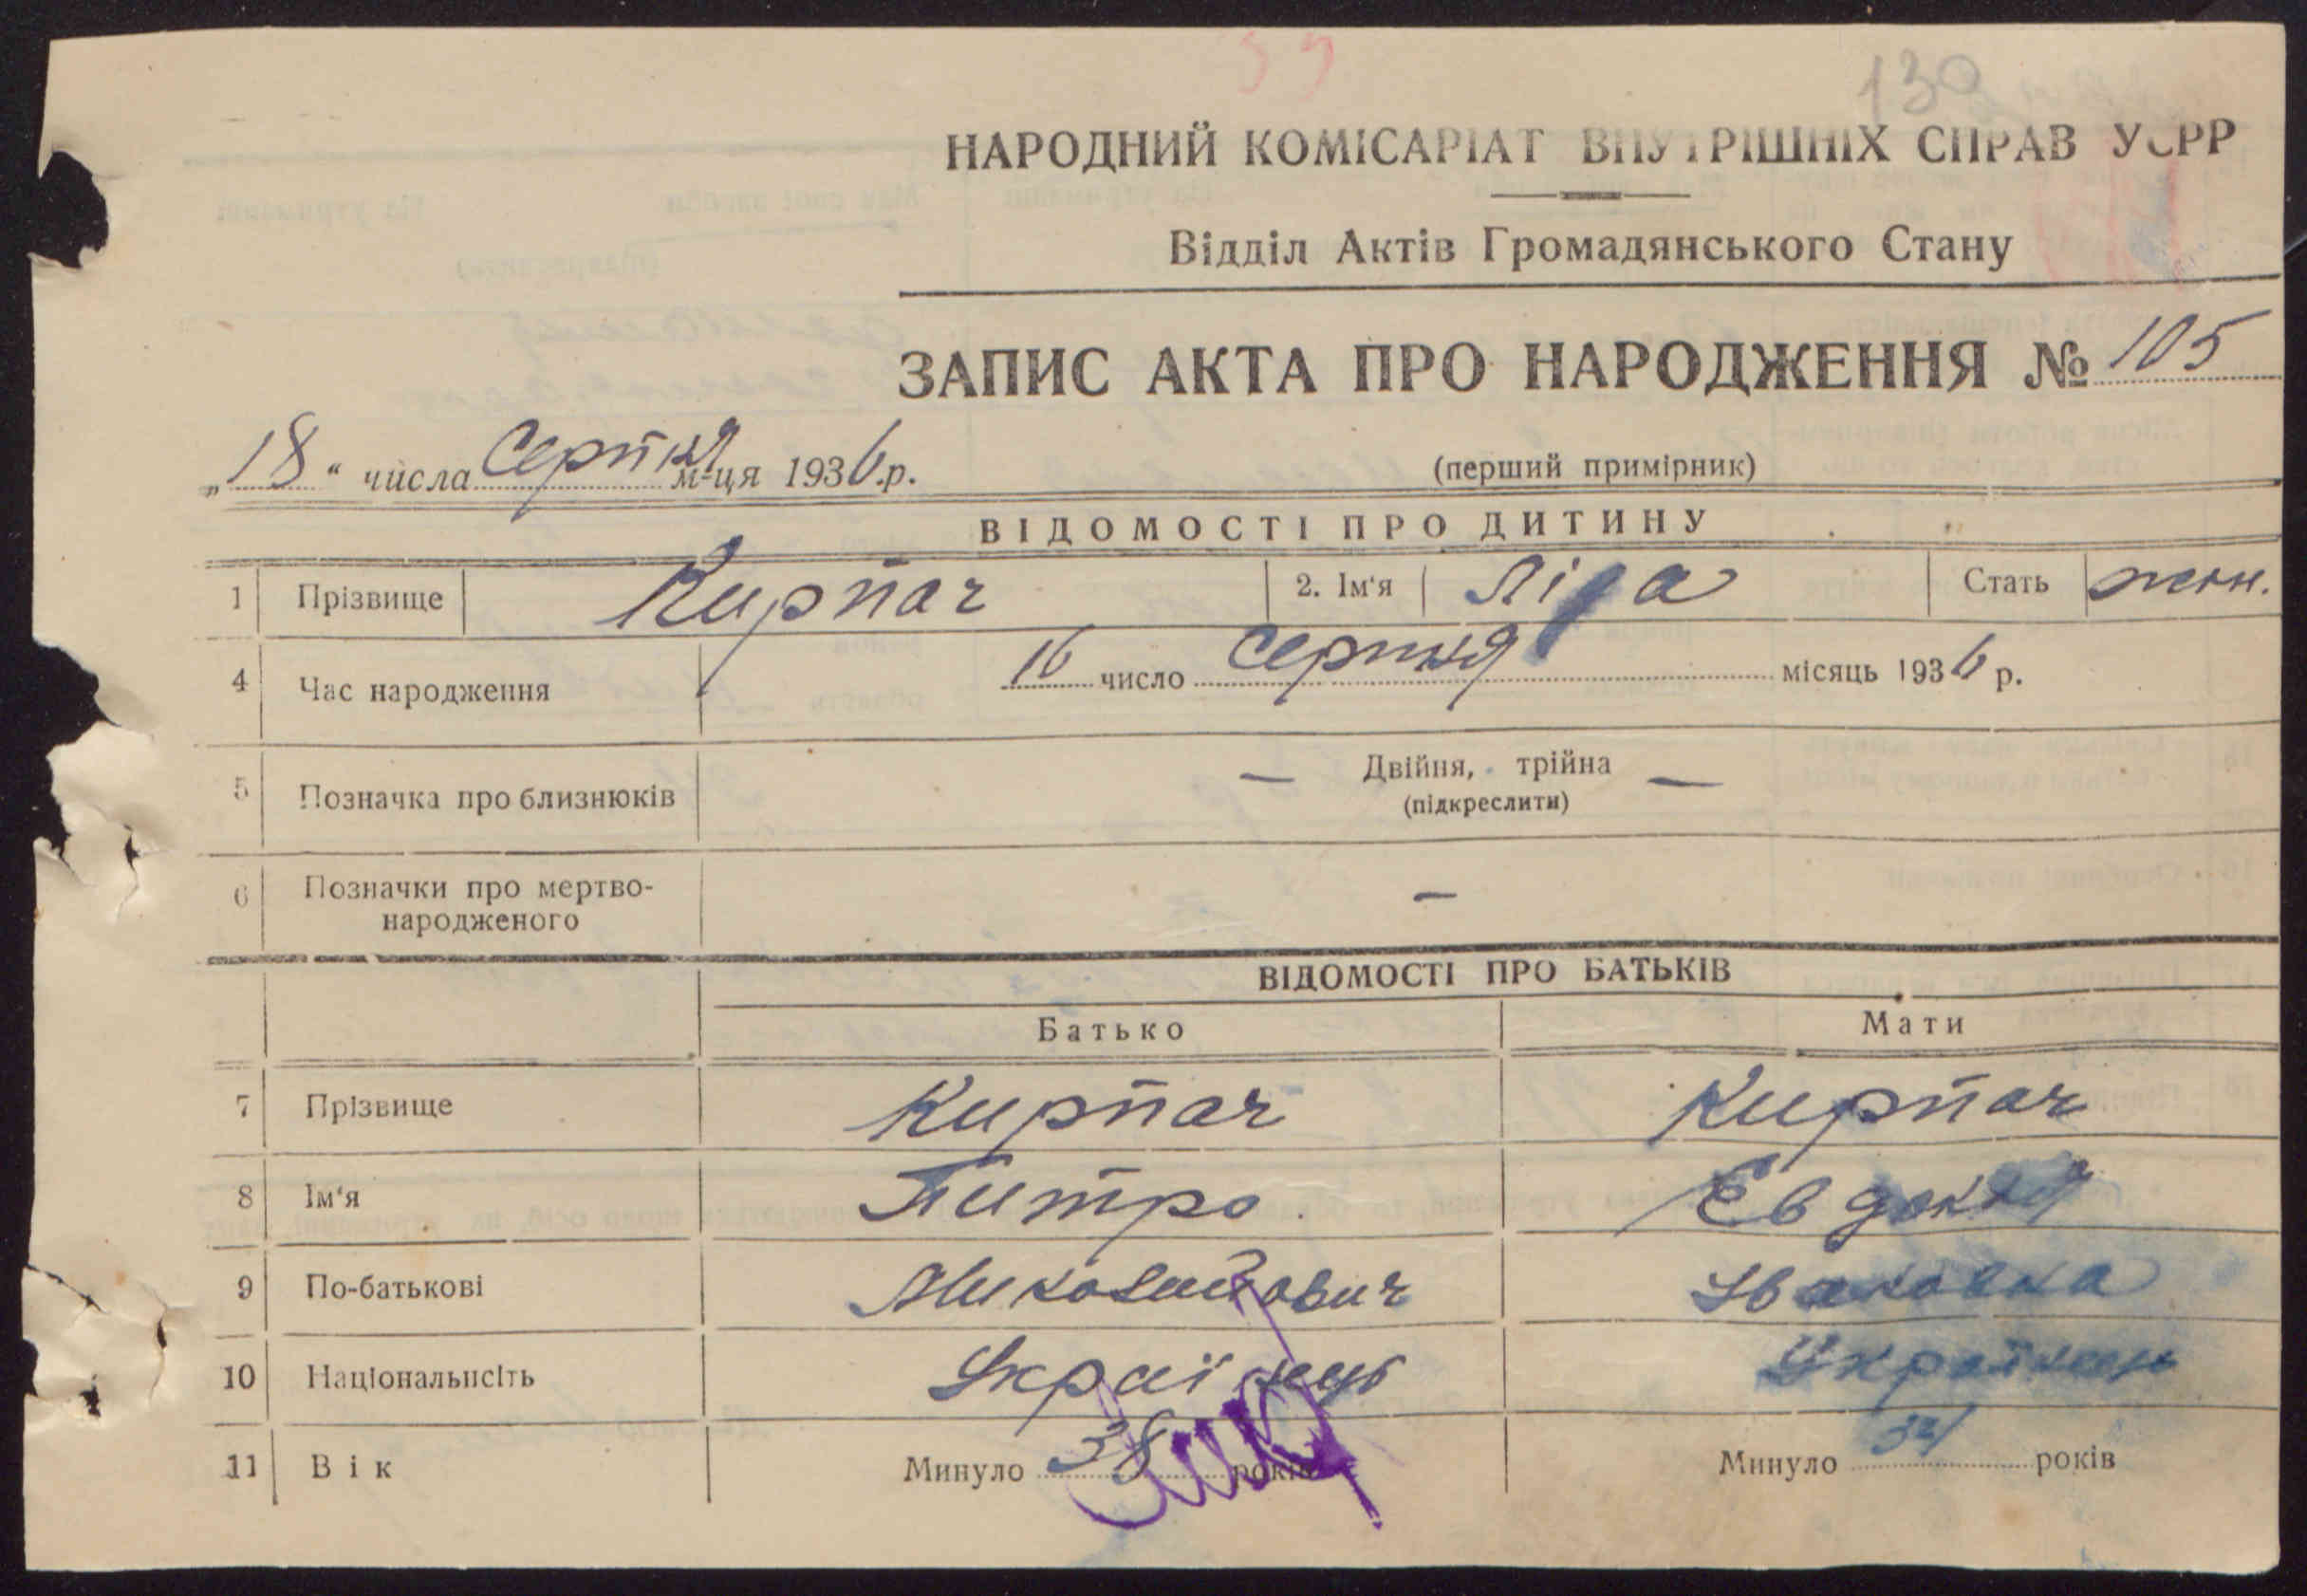 130
НАРОДНИЙ КОМІСАРІАТ ВНУТРІШНІХ СПРАВ УСРР
Відділ Актів Громадянського Стану
ЗАПИС АКТА ПРО НАРОДЖЕННЯ № 105
„18“ числа Серпня м-ця 1936 р.
(перший примірник)
ВІДОМОСТІ ПРО ДИТИНУ
1 Прізвище Кирпач 2. Ім'я Ліда Стать жен.
4 Час народження 16 число серпня місяць 1936 р.
5 Позначка про близнюків — Двійня, трійна —
(підкреслити)
6 Позначки про мертво-
народженого —
ВІДОМОСТІ ПРО БАТЬКІВ
Батько Мати
7 Прізвище Кирпач Кирпач
8 Ім'я Питро Евдокия
9 По-батькові Миколайович Івановна
10 Національність Українць
11 Вік Минуло 38 років Минуло років